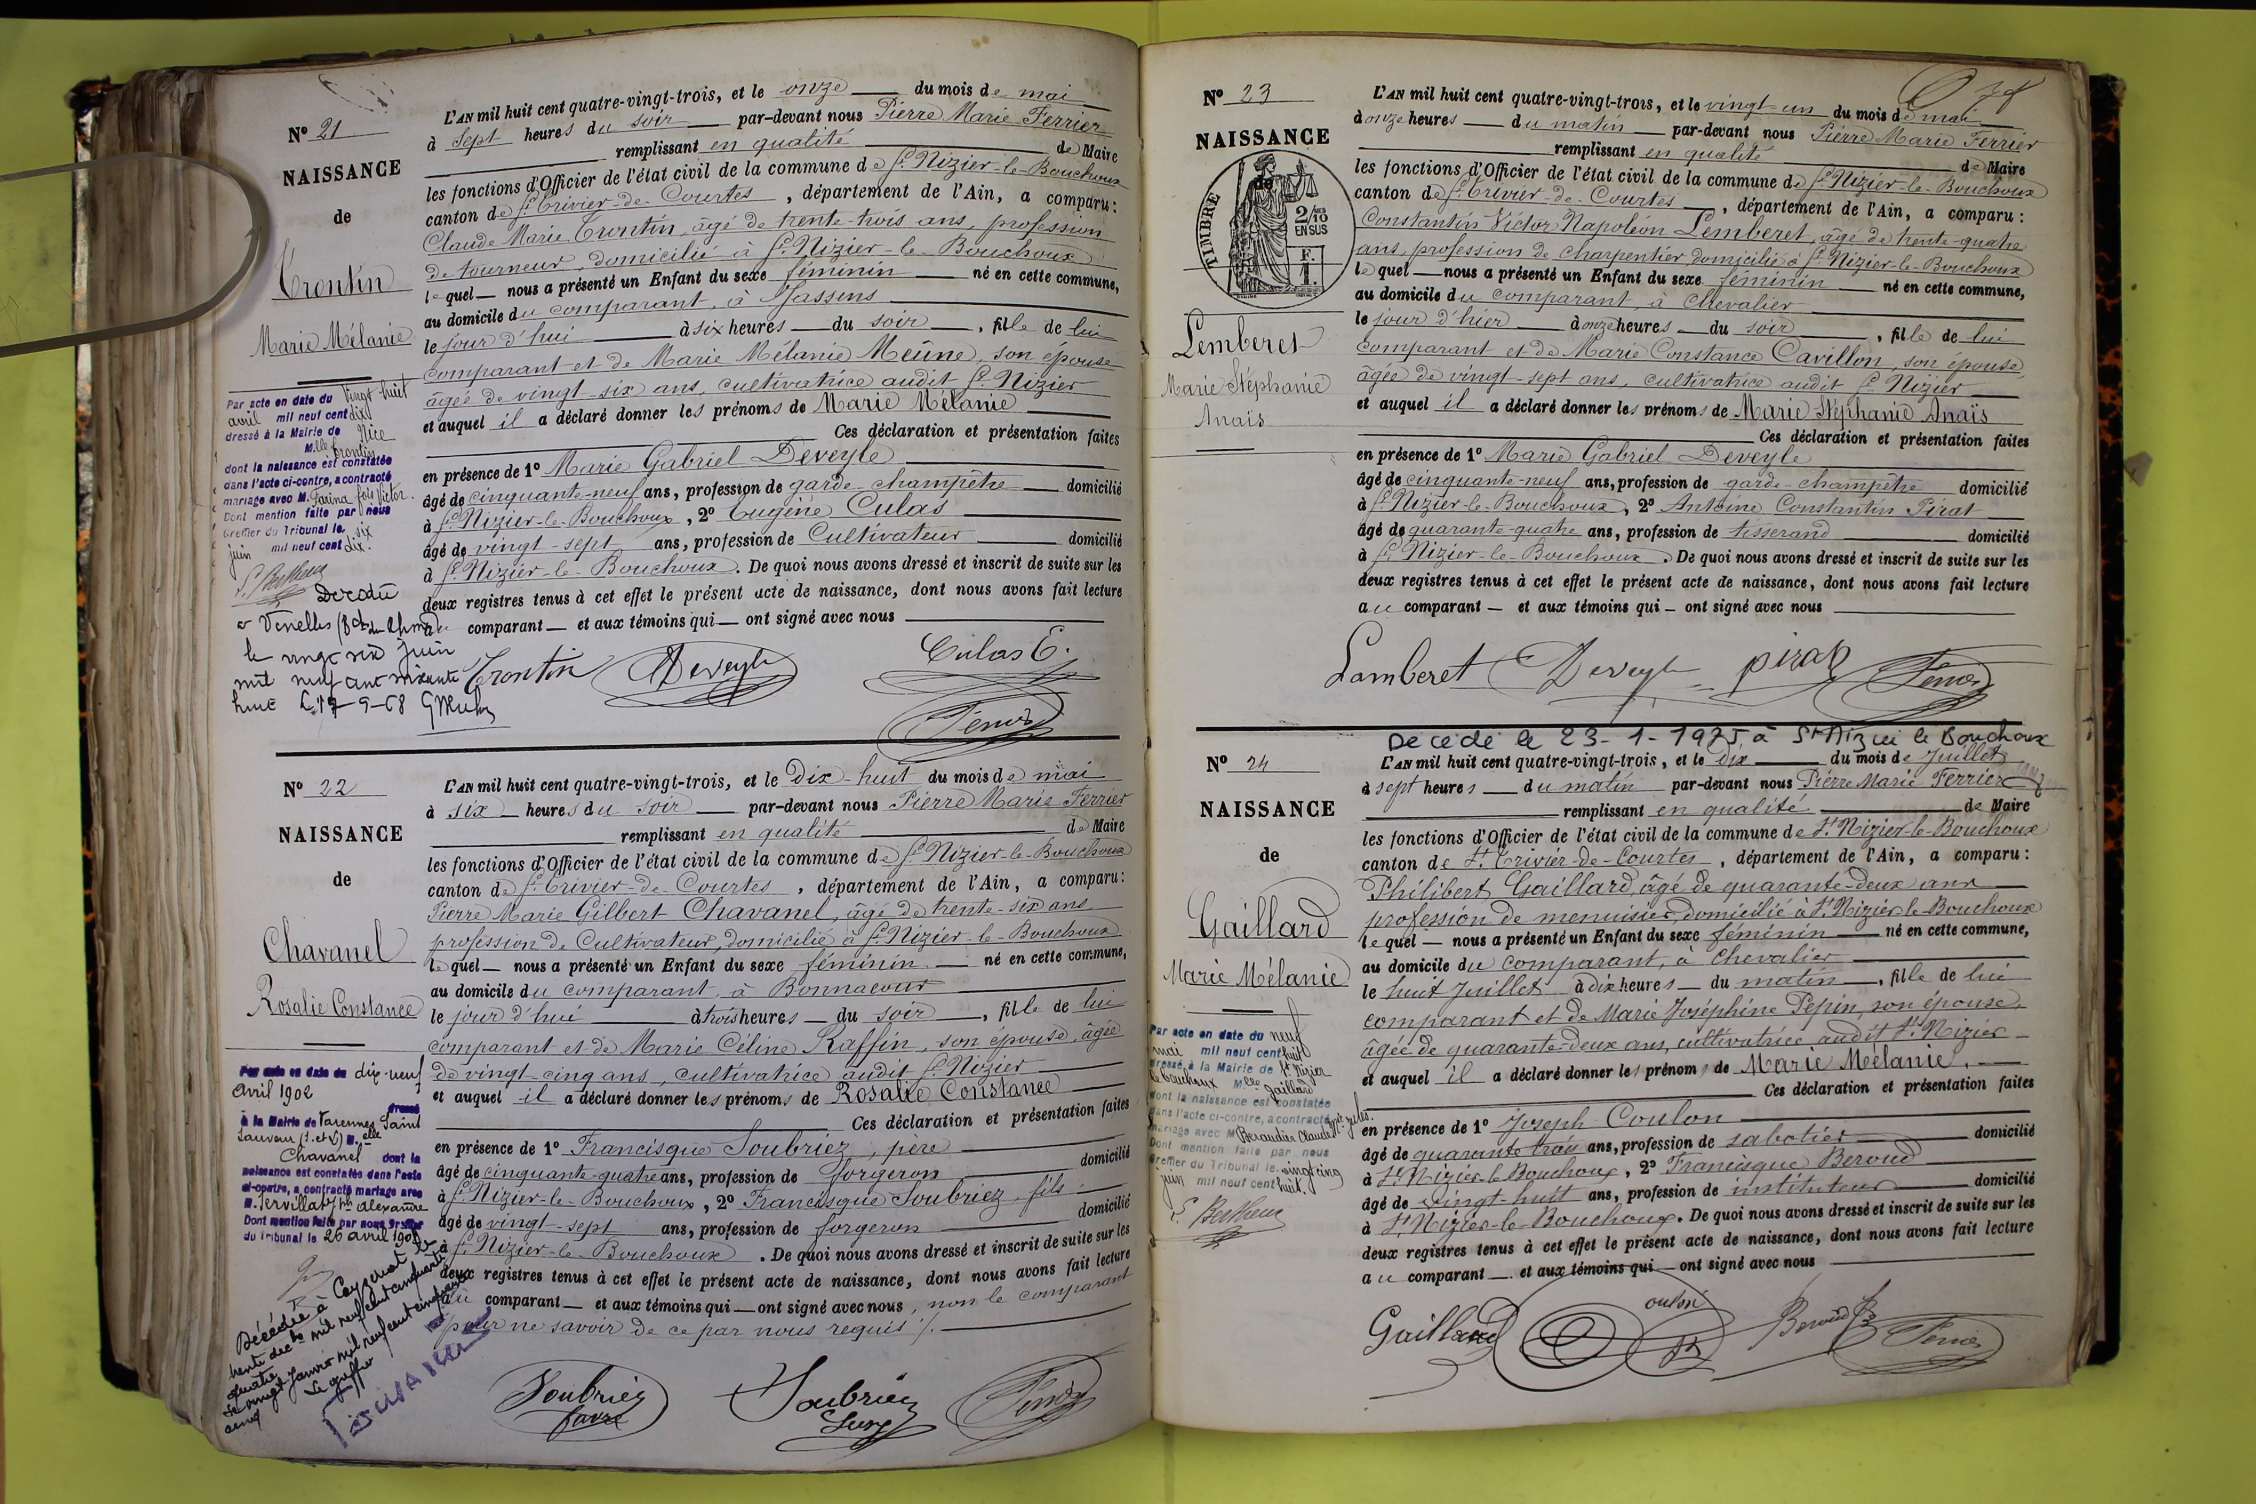 N° 21
NAISSANCE
de
Trontin
Marie Mélanie
Par acte en date du vingt huit
avril mil neuf cent dix
dressé à la Mairie de Nice
M.lle Trontin
dont la naissance est constatée
dans l'acte ci-contre, a contracté
mariage avec M. Farina Victor.
Dont mention faite par nous
Greffier du Tribunal le six
juin mil neuf cent dix.
Décédée
à Venelles
le vingt six juin
mil neuf cent soixante
huit
L'AN mil huit cent quatre-vingt-trois, et le onze du mois de mai
à sept heures du soir par-devant nous Pierre Marie Ferrier
remplissant en qualité de Maire
les fonctions d'Officier de l'état civil de la commune de St Nizier-le-Bouchoux
canton de St Trivier-de-Courtes, département de l'Ain, a comparu:
Claude Marie Trontin, âgé de trente-trois ans, profession
de tourneur, domicilié à St Nizier-le-Bouchoux
lequel nous a présenté un Enfant du sexe féminin né en cette commune,
au domicile du comparant, à Massens
le jour d'hui à six heures du soir, fille de lui
comparant et de Marie Mélanie Meûne, son épouse
âgée de vingt-six ans, cultivatrice audit St Nizier
et auquel il a déclaré donner les prénoms de Marie Mélanie
Ces déclaration et présentation faites
en présence de 1° Marie Gabriel Deveyle
âgé de cinquante-neuf ans, profession de garde-champêtre domicilié
à St Nizier-le-Bouchoux, 2° Eugène Culas
âgé de vingt-sept ans, profession de Cultivateur domicilié
à St Nizier-le-Bouchoux. De quoi nous avons dressé et inscrit de suite sur les
deux registres tenus à cet effet le présent acte de naissance, dont nous avons fait lecture
au comparant et aux témoins qui ont signé avec nous
Trontin Deveyle Culas E.
Ferrier
N° 22
NAISSANCE
de
Chavanel
Rosalie Constance
Par acte en date du dix-neuf
avril 1902
dressé
à la Mairie de Varennes Saint
Sauveur (S. et L) M.elle
Chavanel dont la
naissance est constatée dans l'acte
ci-contre, a contracté mariage avec
M. Servillat Jph Alexandre
Dont mention faite par nous Greffier
du Tribunal le 26 avril 1902
Décédée à Ceyzeriat le
trente décbre mil neuf cent cinquante
quatre
Le vingt janvier mil neuf cent cinquante
cinq Le greffier
L'AN mil huit cent quatre-vingt-trois, et le Dix-huit du mois de mai
à six heures du soir par-devant nous Pierre Marie Ferrier
remplissant en qualité de Maire
les fonctions d'Officier de l'état civil de la commune de St Nizier-le-Bouchoux
canton de St Trivier-de-Courtes, département de l'Ain, a comparu:
Pierre Marie Gilbert Chavanel, âgé de trente-six ans
profession de Cultivateur, domicilié à St Nizier-le-Bouchoux
lequel nous a présenté un Enfant du sexe féminin né en cette commune,
au domicile du comparant, à Bonnacour
le jour d'hui à trois heures du soir, fille de lui
comparant et de Marie Céline Raffin, son épouse, âgée
de vingt-cinq ans, cultivatrice audit St Nizier
et auquel il a déclaré donner les prénoms de Rosalie Constance
Ces déclaration et présentation faites
en présence de 1° Francisque Soubriez, père
âgé de cinquante-quatre ans, profession de forgeron domicilié
à St Nizier-le-Bouchoux, 2° Francisque Soubriez fils
âgé de vingt-sept ans, profession de forgeron domicilié
à St Nizier-le-Bouchoux. De quoi nous avons dressé et inscrit de suite sur les
deux registres tenus à cet effet le présent acte de naissance, dont nous avons fait lecture
au comparant et aux témoins qui ont signé avec nous, non le comparant
pour ne savoir de ce par nous requis ./.
Soubriez Soubriez Ferrier
N° 23
NAISSANCE
de
TIMBRE
2/10
EN SUS
F.
1.
Lemberet
Marie Stéphanie
Anaïs
L'AN mil huit cent quatre-vingt-trois, et le vingt-un du mois de mai
à onze heures du matin par-devant nous Pierre Marie Ferrier
remplissant en qualité de Maire
les fonctions d'Officier de l'état civil de la commune de St Nizier-le-Bouchoux
canton de St Trivier-de-Courtes, département de l'Ain, a comparu:
Constantin Victor Napoléon Lemberet, âgé de trente-quatre
ans, profession de charpentier domicilié à St Nizier-le-Bouchoux
lequel nous a présenté un Enfant du sexe féminin né en cette commune,
au domicile du comparant, à Chevalier
le jour d'hier à onze heures du soir, fille de lui
comparant et de Marie Constance Cavillon, son épouse
âgée de vingt-sept ans, cultivatrice audit St Nizier
et auquel il a déclaré donner les prénoms de Marie Stéphanie Anaïs
Ces déclaration et présentation faites
en présence de 1° Marie Gabriel Deveyle
âgé de cinquante-neuf ans, profession de garde-champêtre domicilié
à St Nizier-le-Bouchoux, 2° Antoine Constantin Pirat
âgé de quarante-quatre ans, profession de tisserand domicilié
à St Nizier-le-Bouchoux. De quoi nous avons dressé et inscrit de suite sur les
deux registres tenus à cet effet le présent acte de naissance, dont nous avons fait lecture
au comparant et aux témoins qui ont signé avec nous
Lamberet Deveyle pirat Ferrier
Décédé le 23-1-1975 à St Nizier le Bouchoux
N° 24
NAISSANCE
de
Gaillard
Marie Mélanie
Par acte en date du neuf
mai mil neuf cent huit
dressé à la Mairie de St Nizier
le Bouchoux Melle Gaillard
dont la naissance est constatée
dans l'acte ci-contre, a contracté
mariage avec M Beraudier Claude Jules.
Dont mention faite par nous
Greffier du Tribunal le vingt cinq
juin mil neuf cent huit.
L'AN mil huit cent quatre-vingt-trois, et le dix du mois de Juillet
à sept heures du matin par-devant nous Pierre Marie Ferrier
remplissant en qualité de Maire
les fonctions d'Officier de l'état civil de la commune de St Nizier-le-Bouchoux
canton de St Trivier-de-Courtes, département de l'Ain, a comparu:
Philibert Gaillard, âgé de quarante-deux ans
profession de menuisier, domicilié à St Nizier-le-Bouchoux
lequel nous a présenté un Enfant du sexe féminin né en cette commune,
au domicile du comparant, à Chevalier
le huit Juillet à dix heures du matin, fille de lui
comparant et de Marie Joséphine Pépin, son épouse,
âgée de quarante-deux ans, cultivatrice audit St Nizier
et auquel il a déclaré donner les prénoms de Marie Mélanie.
Ces déclaration et présentation faites
en présence de 1° Joseph Coulon
âgé de quarante trois ans, profession de sabotier domicilié
à St Nizier-le-Bouchoux, 2° Francisque Beroud
âgé de vingt-huit ans, profession de instituteur domicilié
à St Nizier-le-Bouchoux. De quoi nous avons dressé et inscrit de suite sur les
deux registres tenus à cet effet le présent acte de naissance, dont nous avons fait lecture
au comparant et aux témoins qui ont signé avec nous
Gaillard Coulon Beroud Ferrier